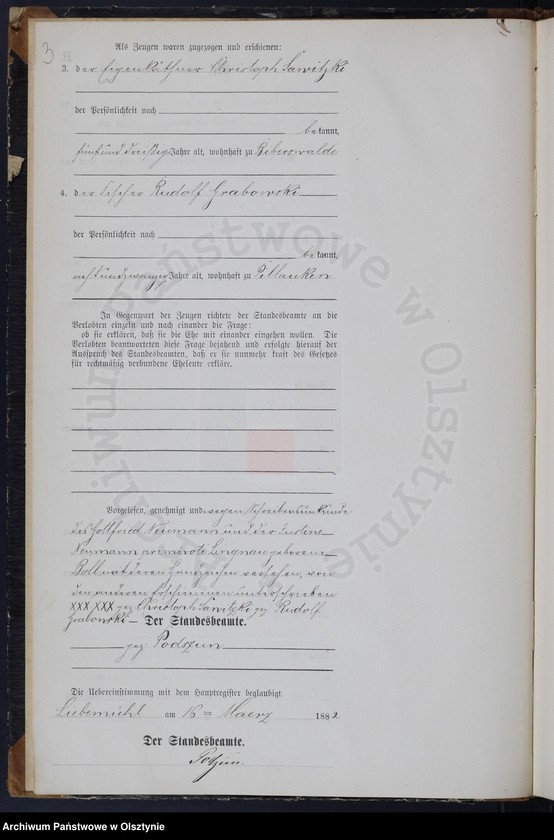 3
Als Zeugen waren zugezogen und erschienen:
3. der Eigenkäthner Christoph Sawitzki
der Persönlichkeit nach
bekannt,
fünfunddreißig Jahre alt, wohnhaft zu Biberswalde
4. der Fischer Rudolf Grabowski
der Persönlichkeit nach
bekannt,
achtundzwanzig Jahre alt, wohnhaft zu Pillauken
In Gegenwart der Zeugen richtete der Standesbeamte an die
Verlobten einzeln und nach einander die Frage:
ob sie erklären, daß sie die Ehe mit einander eingehen wollen. Die
Verlobten beantworteten diese Frage bejahend und erfolgte hierauf der
Ausspruch des Standesbeamten, daß er sie nunmehr kraft des Gesetzes
für rechtmäßig verbundene Eheleute erkläre.
Vorgelesen, genehmigt und wegen Schreibensunkunde
des Gottfried Neumann und der Justine
Neumann primivoto Lingnau geborene
Boll mit deren Handzeichen versehen, von
den anderen Erschienenen unterschrieben
XXX XXX gez. Christoph Sawitzki gez. Rudolf
Grabowski – Der Standesbeamte.
gez. Podszun
Die Uebereinstimmung mit dem Hauptregister beglaubigt.
Liebemühl am 16ten Maerz 1882
Der Standesbeamte.
Archiwum Państwowe w Olsztynie
Archiwum Państwowe w Olsztynie